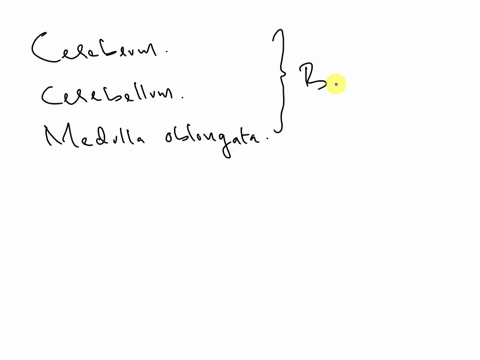 Cerebrum.
Cerebellum.
Medulla oblongata.
B